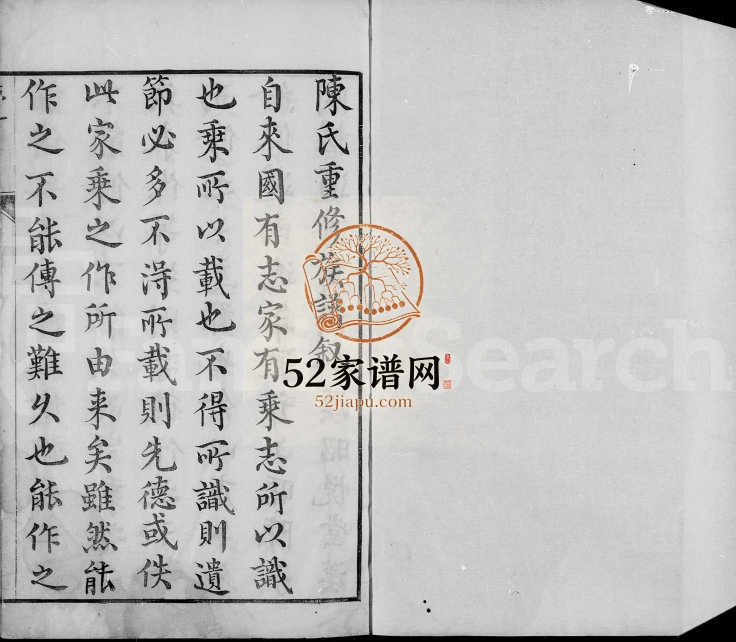 陳氏重修族譜叙
自來國有志家有乘志所以識
也乘所以載也不得所識則遺
節必多不得所載則先德或佚
此家乘之作所由来矣雖然能
作之不能傳之難久也能作之
52家谱网
52jiapu.com
FamilySearch